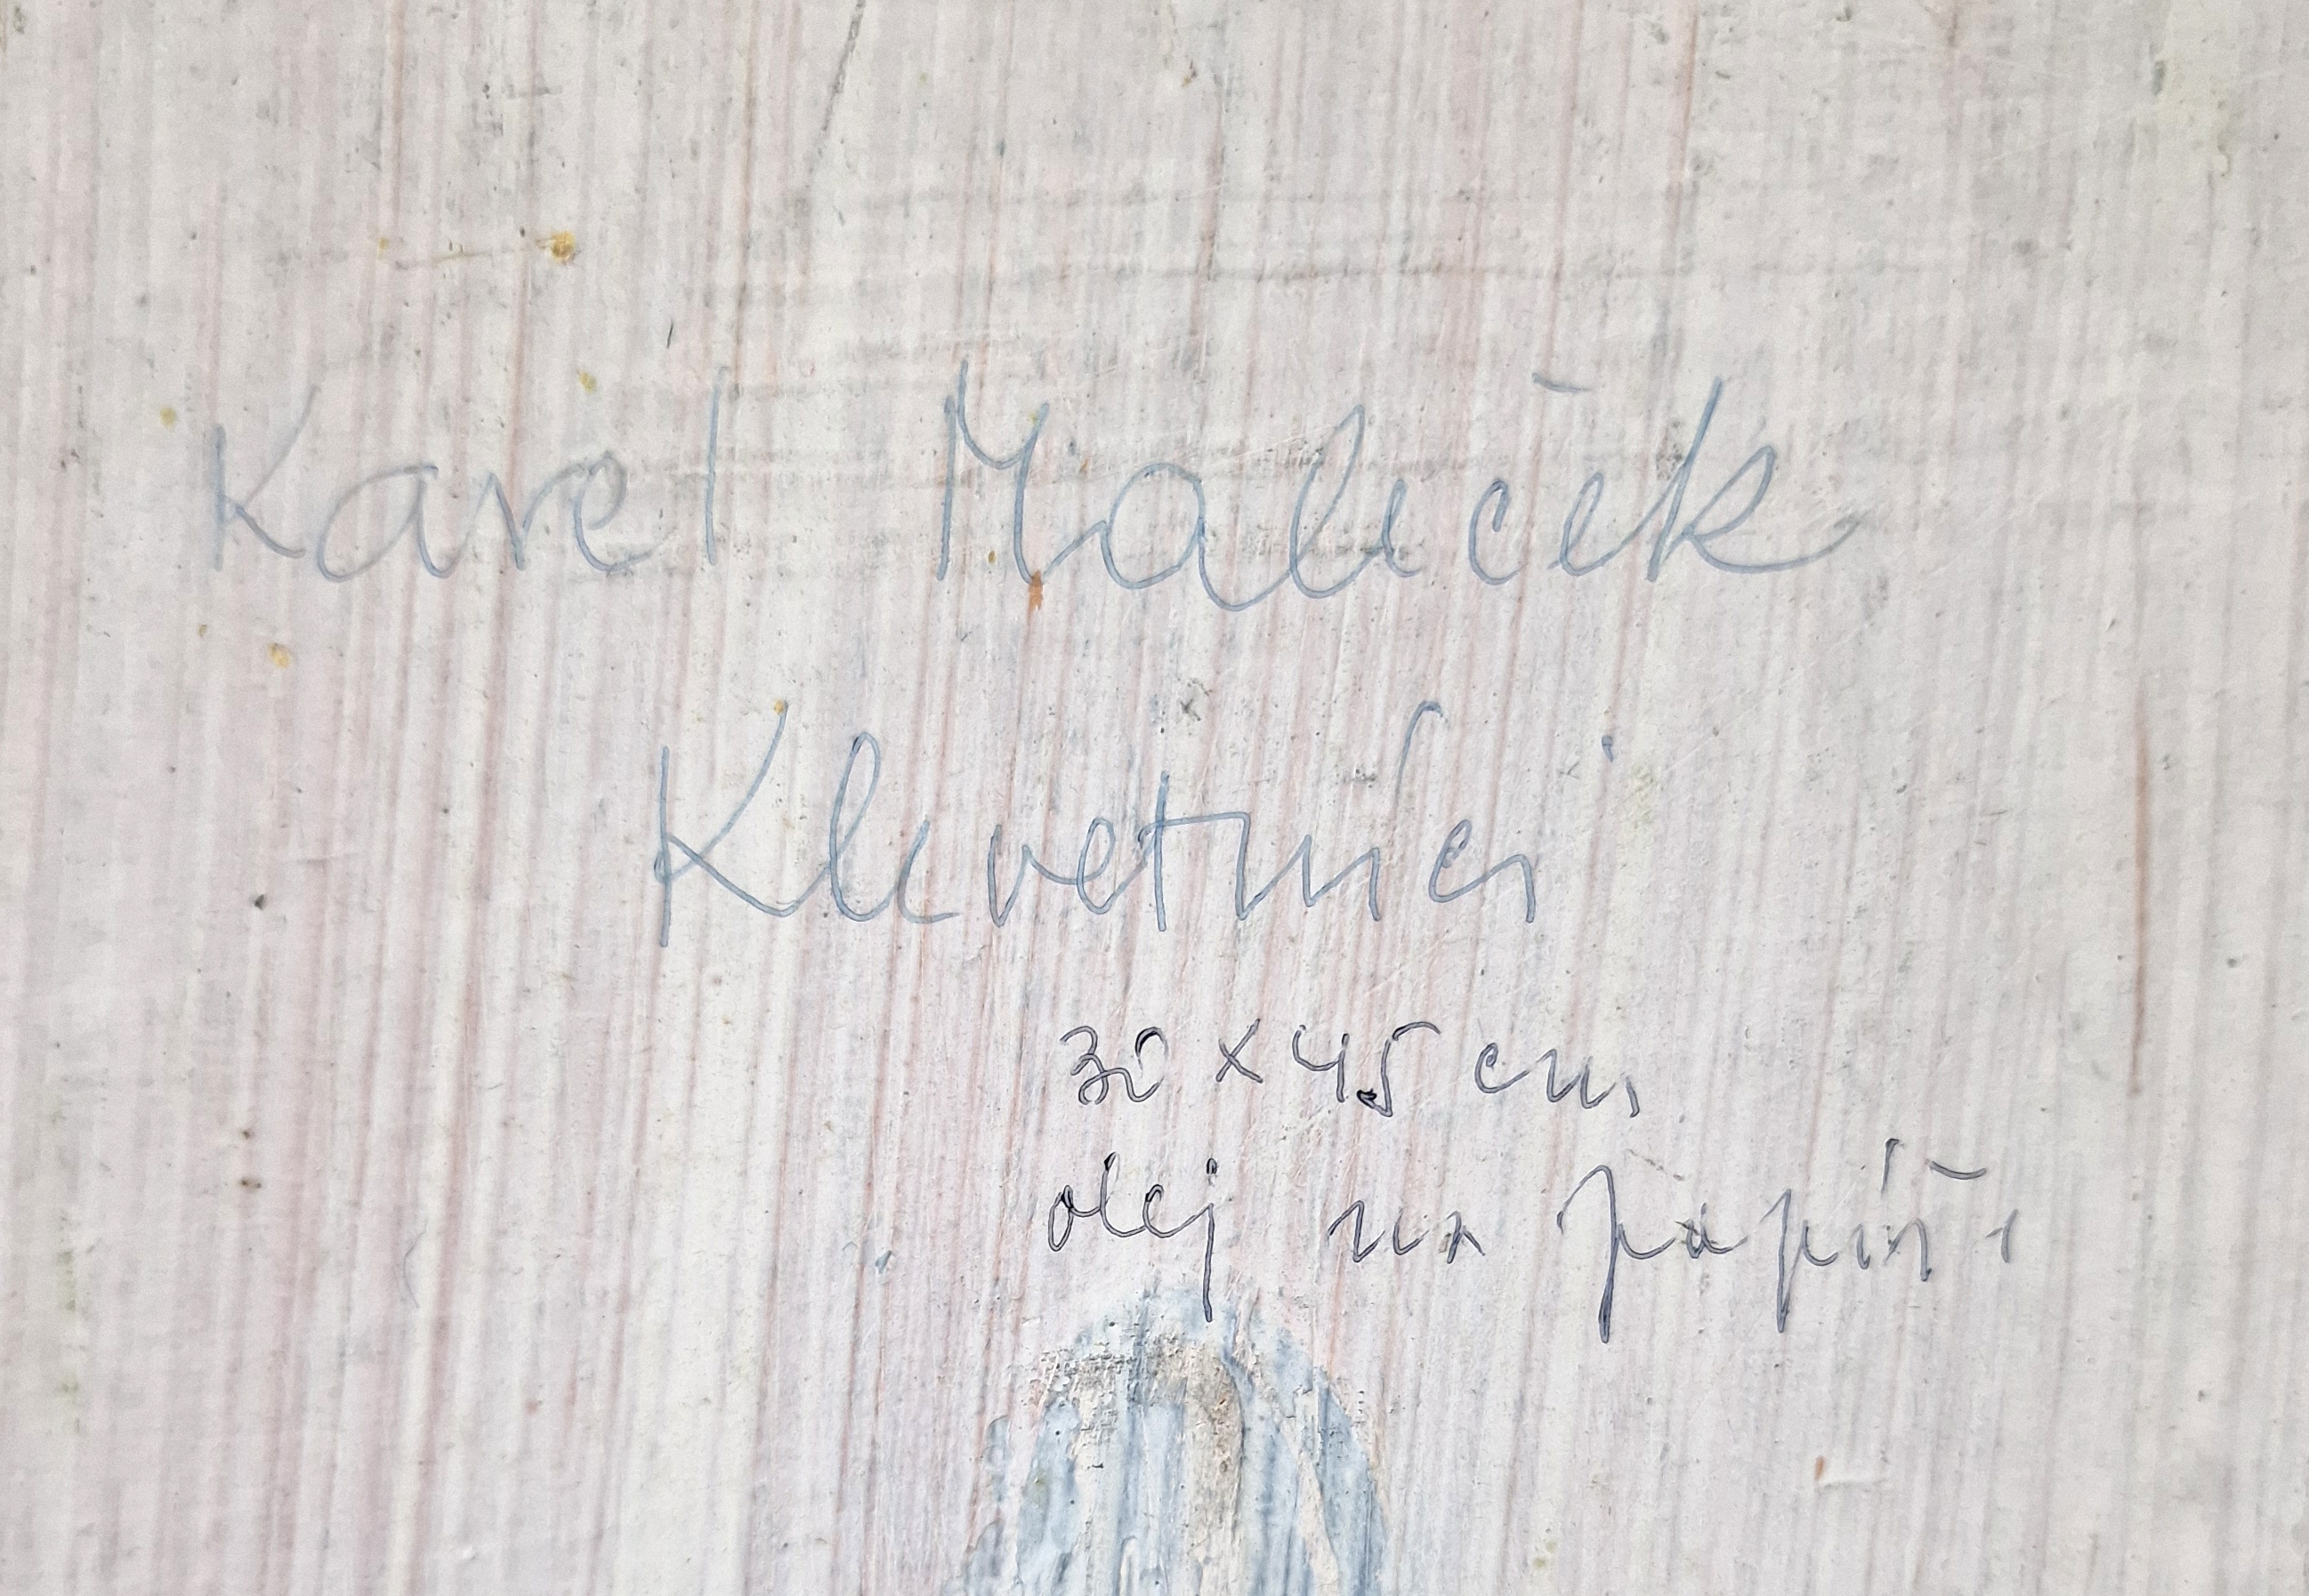 Karel Maliček
Klevetníci
30 x 45 cm
olej na papíře